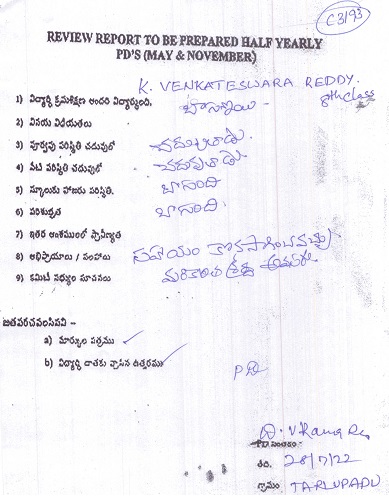 C3/93
REVIEW REPORT TO BE PREPARED HALF YEARLY
PD'S (MAY & NOVEMBER)
K. VENKATESWARA REDDY.
8th class
1) విద్యార్థి క్రమశిక్షణ అందరి విద్యార్థులంది,
2) వినయ విధేయతలు
3) పూర్వపు పరిస్థితి చదువులో చదువుతాడు.
4) నేటి పరిస్థితి చదువులో చదువుతాడు
5) స్కూలుకు హాజరు పరిస్థితి. బాగుంది
6) పరిశుభ్రత బాగుంది.
7) ఇతర అంశములలో ప్రావీణ్యత
8) అభిప్రాయాలు / సలహాలు సహాయం కొనసాగించవచ్చు
9) కమిటీ సభ్యుల సూచనలు మరికొంత శ్రద్ధ అవసరం
జతపరచవలసినవి –
a) మార్కుల పత్రము ✓
b) విద్యార్థి దాతకు వ్రాసిన ఉత్తరము ✓
PD
సంతకం
తేది. 28/7/22
గ్రామం TARLUPADU